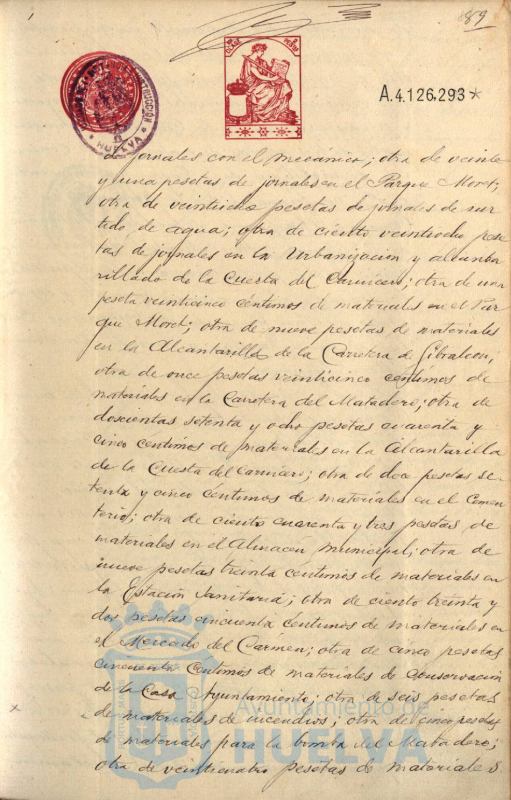 89
A.4.126.293*
HUELVA
de jornales con el mecánico; otra de veinte
y una pesetas de jornales en el Parque Moret;
otra de veintiocho pesetas de jornales de sur
tido de agua; otra de ciento veintiocho pese
tas de jornales en la Urbanizacion y alcanta
rillado de la Cuesta del Carnicero; otra de una
peseta veinticinco centimos de materiales en el Par
que Moret; otra de nueve pesetas de materiales
en la Alcantarilla de la Carretera de Gibraleon;
otra de once pesetas veinticinco centimos de
materiales en la Carretera del Matadero; otra de
doscientas setenta y ocho pesetas cuarenta y
cinco centimos de materiales en la Alcantarilla
de la Cuesta del Carnicero; otra de doce pesetas se
tenta y cinco centimos de materiales en el Cemen
terio; otra de ciento cuarenta y tres pesetas de
materiales en el Almacén municipal; otra de
nueve pesetas treinta centimos de materiales en
la Estación Sanitaria; otra de ciento treinta y
dos pesetas cincuenta centimos de materiales en
el Mercado del Carmen; otra de cinco pesetas
cincuenta centimos de materiales de conservación
de la Casa Ayuntamiento; otra de seis pesetas
de materiales de incendios; otra de cinco pesetas
de materiales para la bomba del Matadero;
otra de veinticuatro pesetas de materiales
Ayuntamiento de
HUELVA